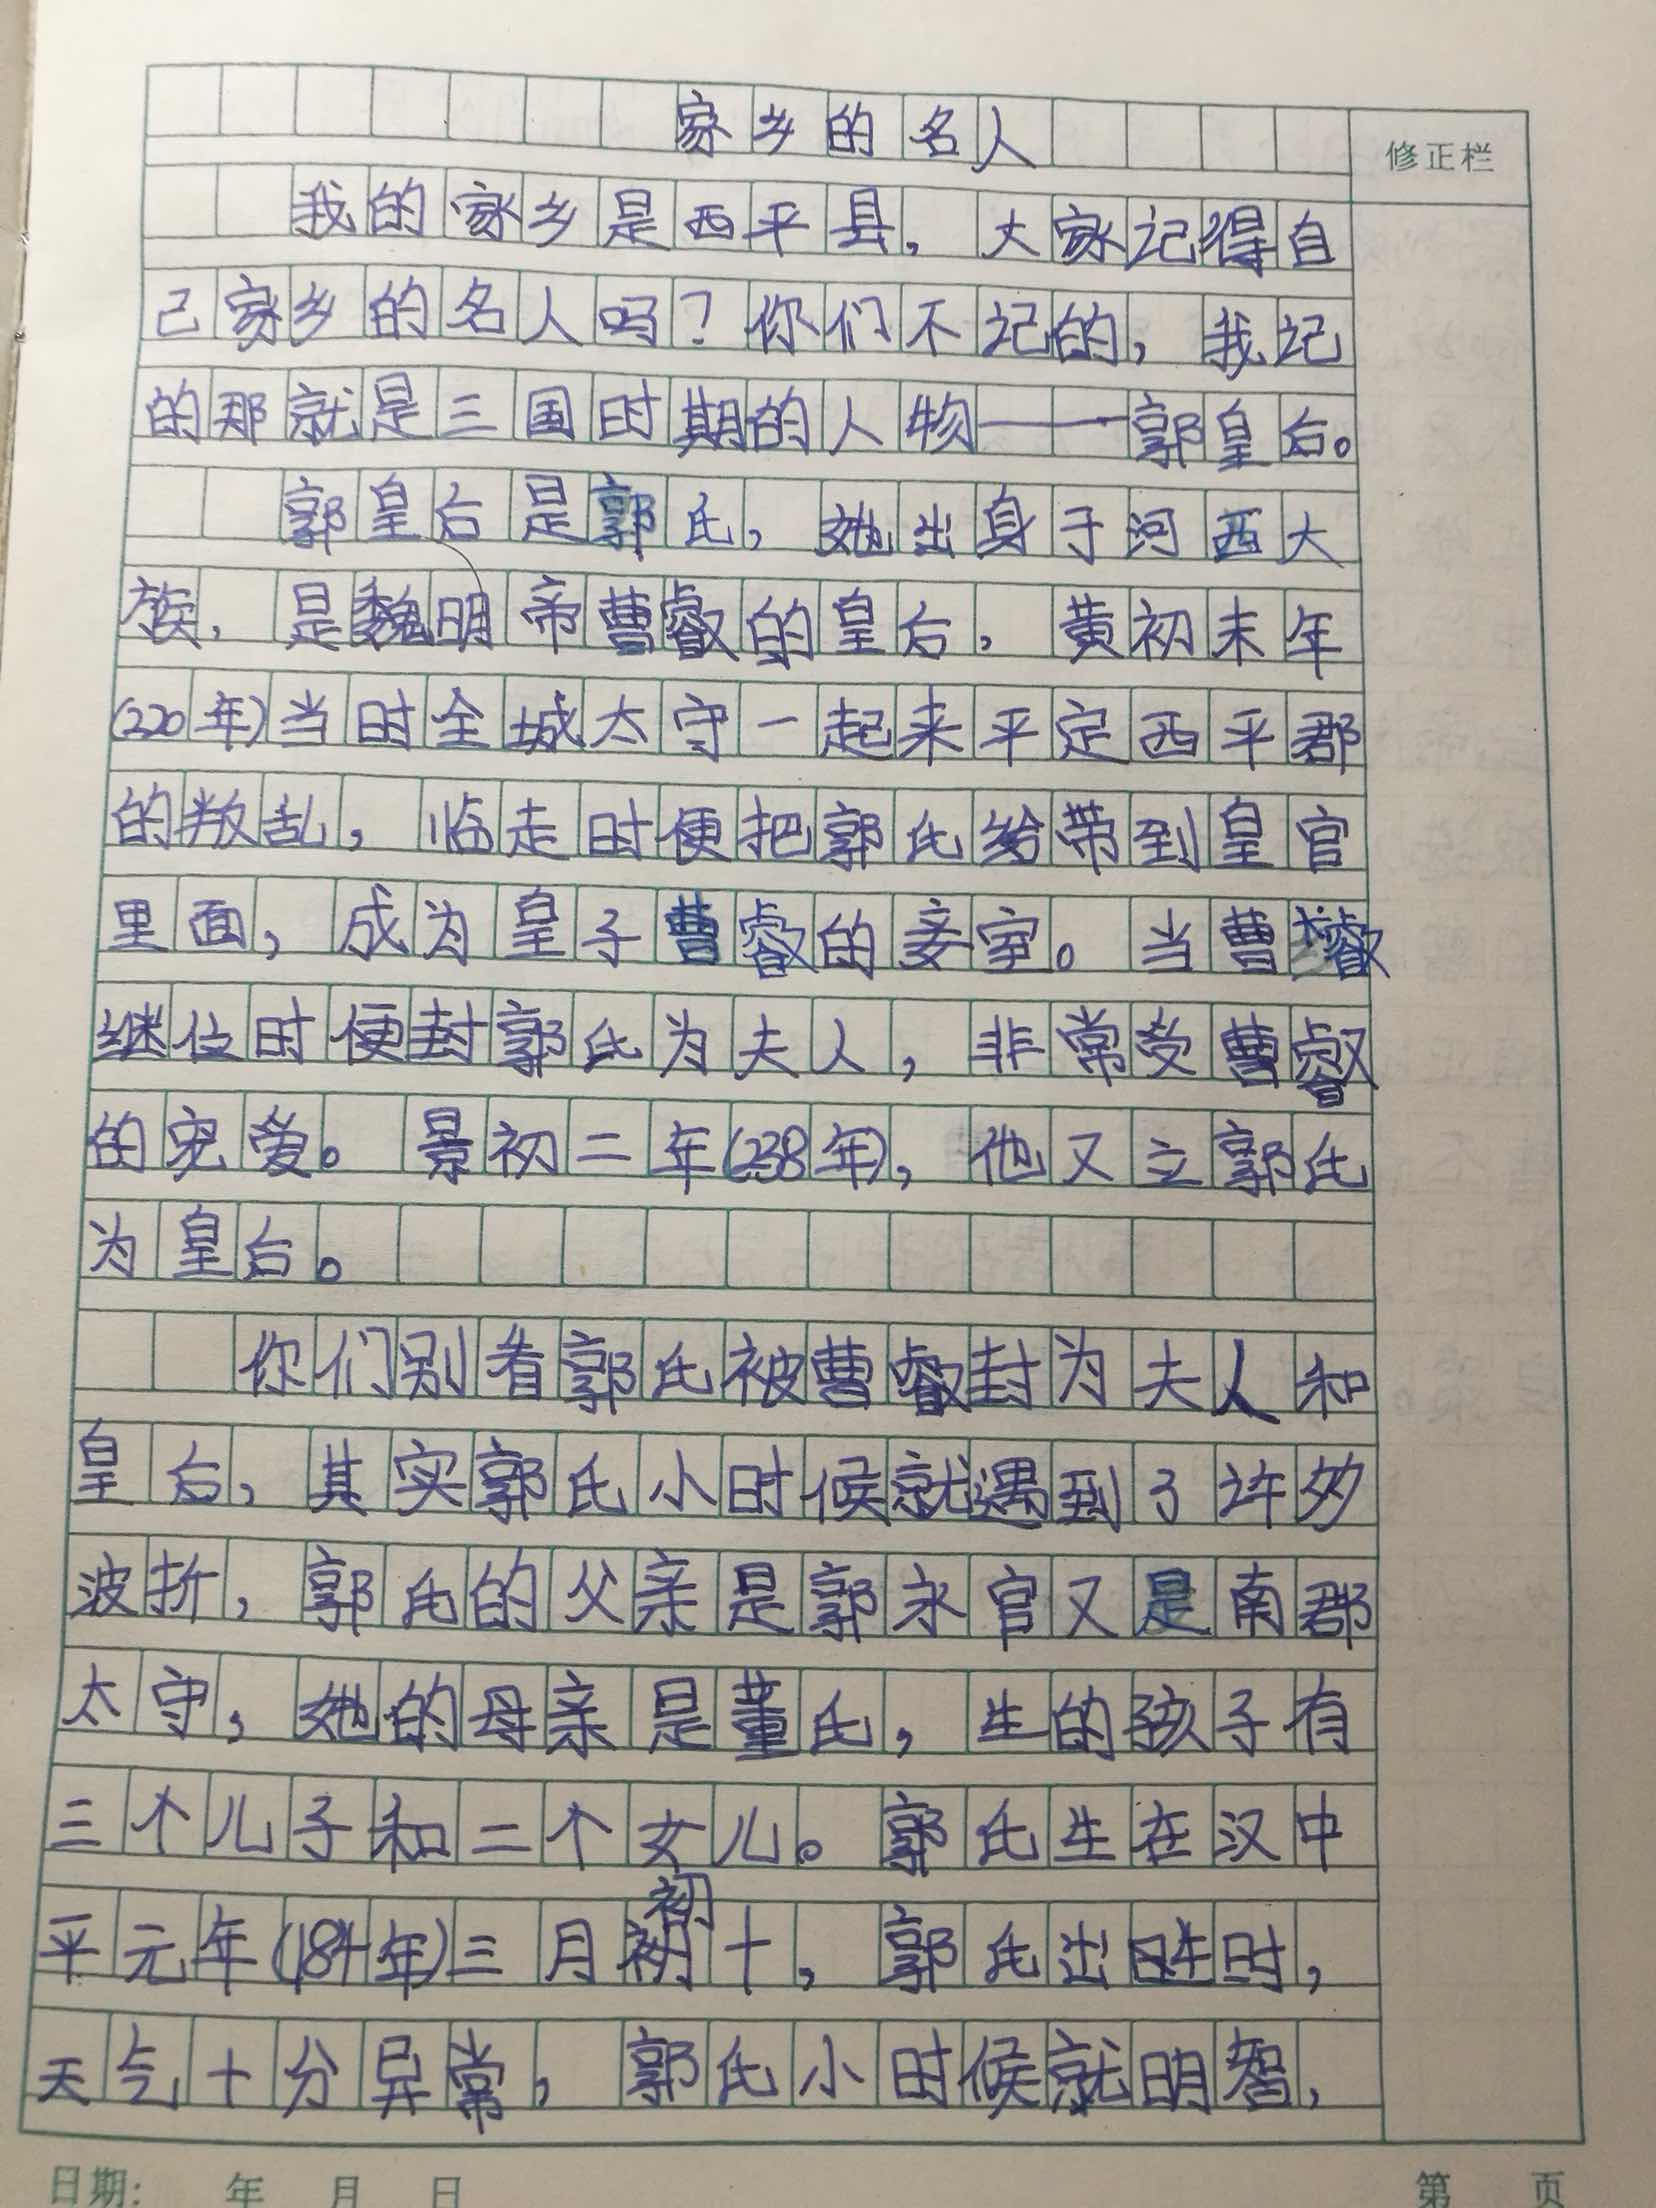 家乡的名人
修正栏
我的家乡是西平县，大家记得自
己家乡的名人吗？你们不记的，我记
的那就是三国时期的人物——郭皇后。
郭皇后是郭氏，她出身于河西大
族，是魏明帝曹叡的皇后，黄初末年
(220年)当时全城太守一起来平定西平郡
的叛乱，临走时便把郭氏给带到皇官
里面，成为皇子曹叡的妾室。当曹叡
继位时便封郭氏为夫人，非常受曹叡
的宠爱。景初二年(238年)，他又立郭氏
为皇后。
你们别看郭氏被曹叡封为夫人和
皇后，其实郭氏小时候就遇到了许多
波折，郭氏的父亲是郭永官又是南郡
太守，她的母亲是董氏，生的孩子有
三个儿子和二个女儿。郭氏生在汉中
平元年(184年)三月初十，郭氏出生时，
天气十分异常，郭氏小时候就明智，
日期： 年 月 日
第 页